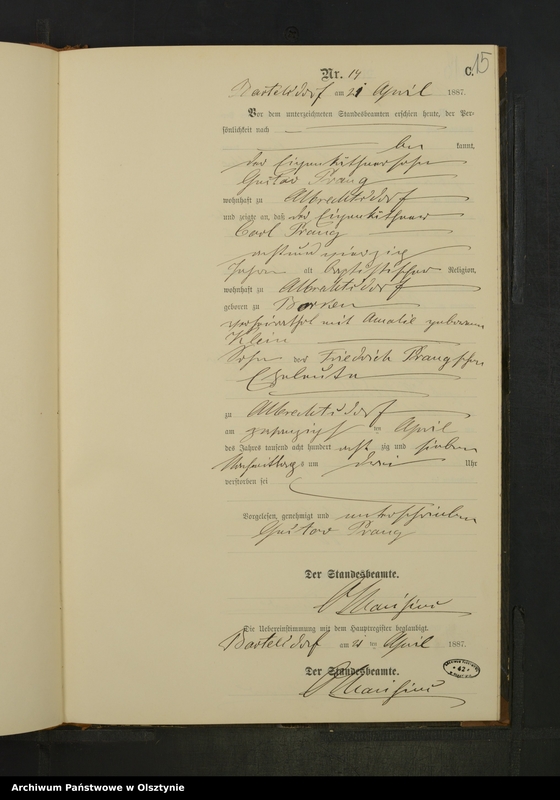 15
Nr. 14
C.
Bartelsdorf am 21 April 1887.
Vor dem unterzeichneten Standesbeamten erschien heute, der Per-
sönlichkeit nach
be kannt,
der Eigenkäthnersohn
Gustav Prang
wohnhaft zu Albrechtsdorf
und zeigte an, daß der Eigenkäthner
Carl Prang
achtundvierzig
Jahre alt baptistischer Religion,
wohnhaft zu Albrechtsdorf
geboren zu Borken
verheirathet mit Amalie geborene
Klein
Sohn der Friedrich Prang'schen
Eheleute
zu Albrechtsdorf
am zwanzigsten April
des Jahres tausend acht hundert acht zig und sieben
Nachmittags um drei Uhr
verstorben sei
Vorgelesen, genehmigt und unterschrieben
Gustav Prang
Der Standesbeamte.
Die Uebereinstimmung mit dem Hauptregister beglaubigt.
Bartelsdorf am 21 ten April 1887.
Der Standesbeamte.
42
Archiwum Państwowe w Olsztynie